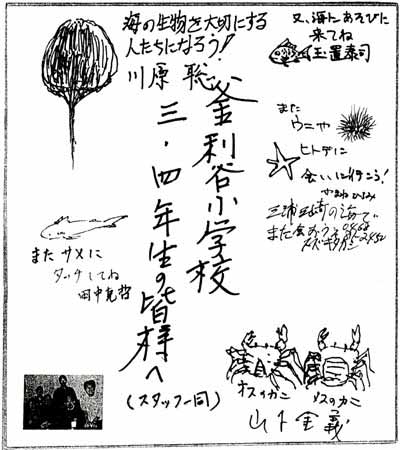 海の生物を大切にする
人たちになろう!
川原 聡
又、海にあそびに
来てね
玉置泰司
釜利谷小学校
三・四年生の皆様へ
(スタッフ一同)
また
ウニや
ヒトデに
会いに行こう!
三浦三崎の海で
また会おう
また サメに
タッチしてね
田中克哲
オスのカニ
メスのカニ
山下金義